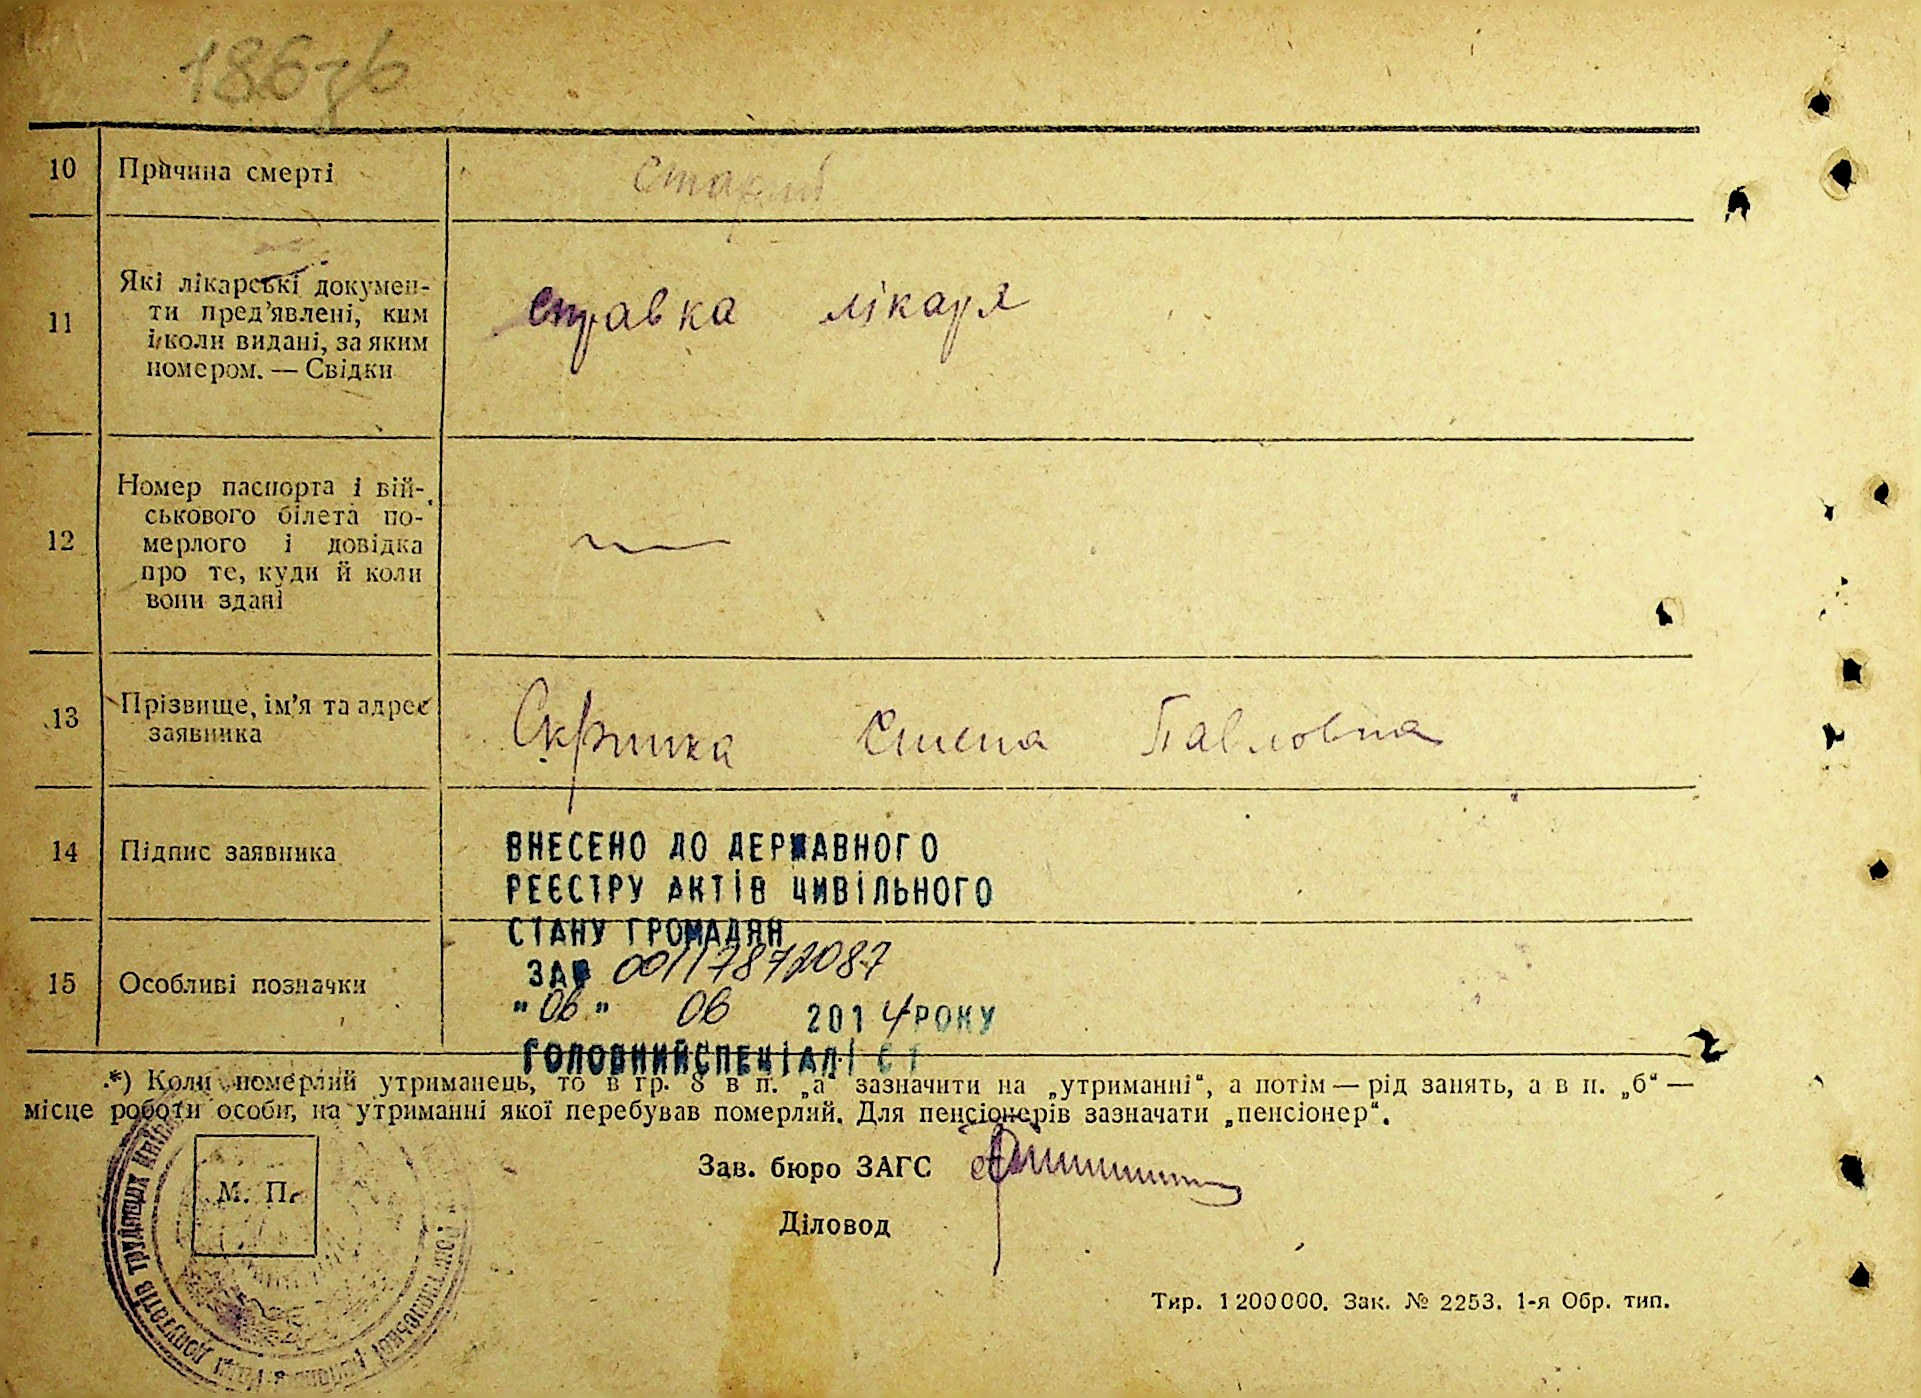 186зв
10 Причина смерті старий
11 Які лікарські докумен-
ти пред'явлені, ким
і коли видані, за яким
номером. — Свідки
справка лікаря
12 Номер паспорта і вій-
ськового білета по-
мерлого і довідка
про те, куди й коли
вони здані
—
13 Прізвище, ім'я та адрес
заявника
Скрипка Павловна
14 Підпис заявника
ВНЕСЕНО ДО ДЕРЖАВНОГО
РЕЄСТРУ АКТІВ ЦИВІЛЬНОГО
СТАНУ ГРОМАДЯН
ЗА№ 00117872087
15 Особливі позначки
"06" 06 2014 РОКУ
ГОЛОВНИЙ СПЕЦІАЛІСТ
*) Коли померлий утриманець, то в гр. 8 в п. „а“ зазначити на „утриманні“, а потім — рід занять, а в п. „б“ —
місце роботи особи, на утриманні якої перебував померлий. Для пенсіонерів зазначати „пенсіонер“.
Зав. бюро ЗАГС
М. П.
Діловод
депутатів трудящих
Тир. 1200000. Зак. № 2253. 1-я Обр. тип.